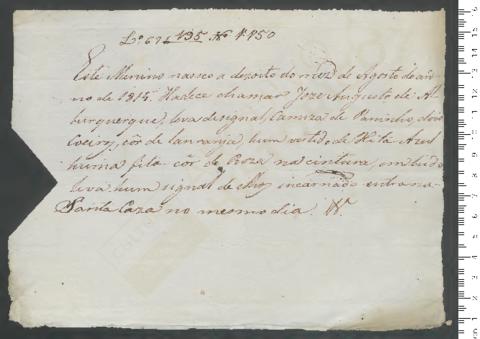 Lº 691 135 Nº 1150
Este Minino nasceo a dezoito do mez de Agosto do an
no de 1814. Hadece chamar Joze Augusto de Al
burquerque, leva de signal, Camiza de Paninho, dois
Coeiros, côr de lanranja, hum vestido de Xita Azul
huma fita côr de Roza na cintura, em tudo
leva hum signal de incarnado entrou na
Santa Caza no mesmo dia.